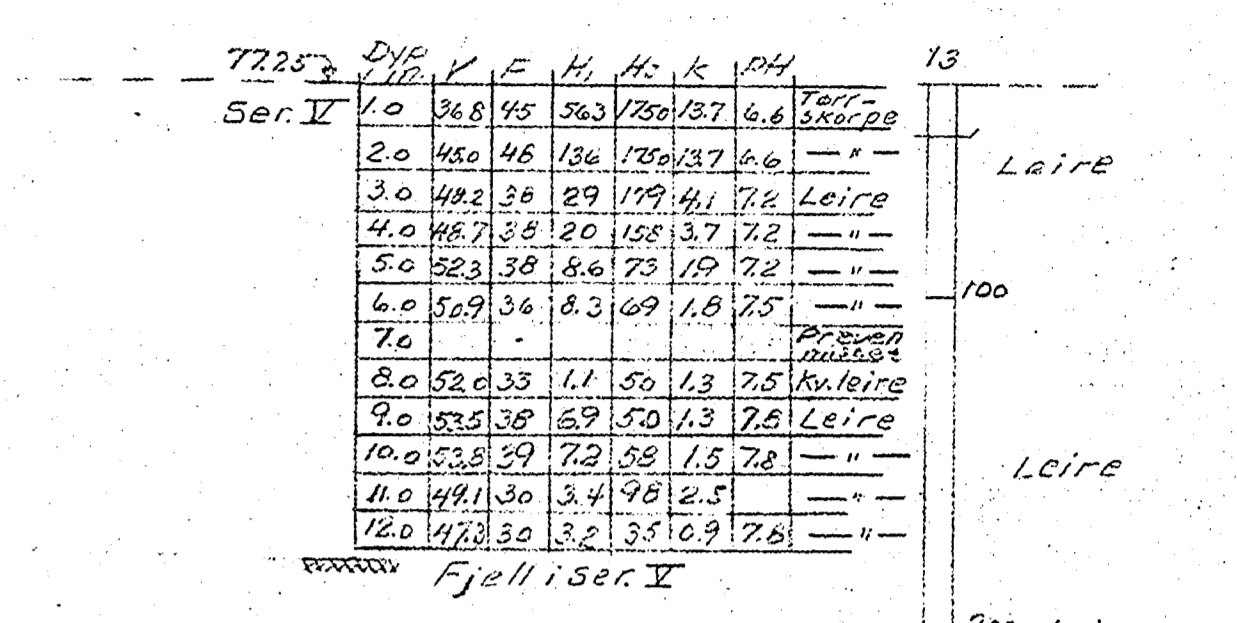 77.25 Dyp i m. V F H₁ H₃ k pH 13
Ser. V 1.0 36.8 45 563 1750 13.7 6.6 Tørr-
skorpe
2.0 45.0 46 136 1750 13.7 6.6 — " —
Leire
3.0 48.2 38 29 179 4.1 7.2 Leire
4.0 48.7 38 20 158 3.7 7.2 — " —
5.0 52.3 38 8.6 73 1.9 7.2 — " —
6.0 50.9 36 8.3 69 1.8 7.5 — " — 100
7.0 Prøven
8.0 52.0 33 1.1 50 1.3 7.5 Kv. leire
9.0 53.5 38 6.9 50 1.3 7.8 Leire
10.0 53.8 39 7.2 58 1.5 7.8 — " —
Leire
11.0 49.1 30 3.4 98 2.5 — " —
12.0 47.3 30 3.2 35 0.9 7.8 — " —
Fjell i ser. V